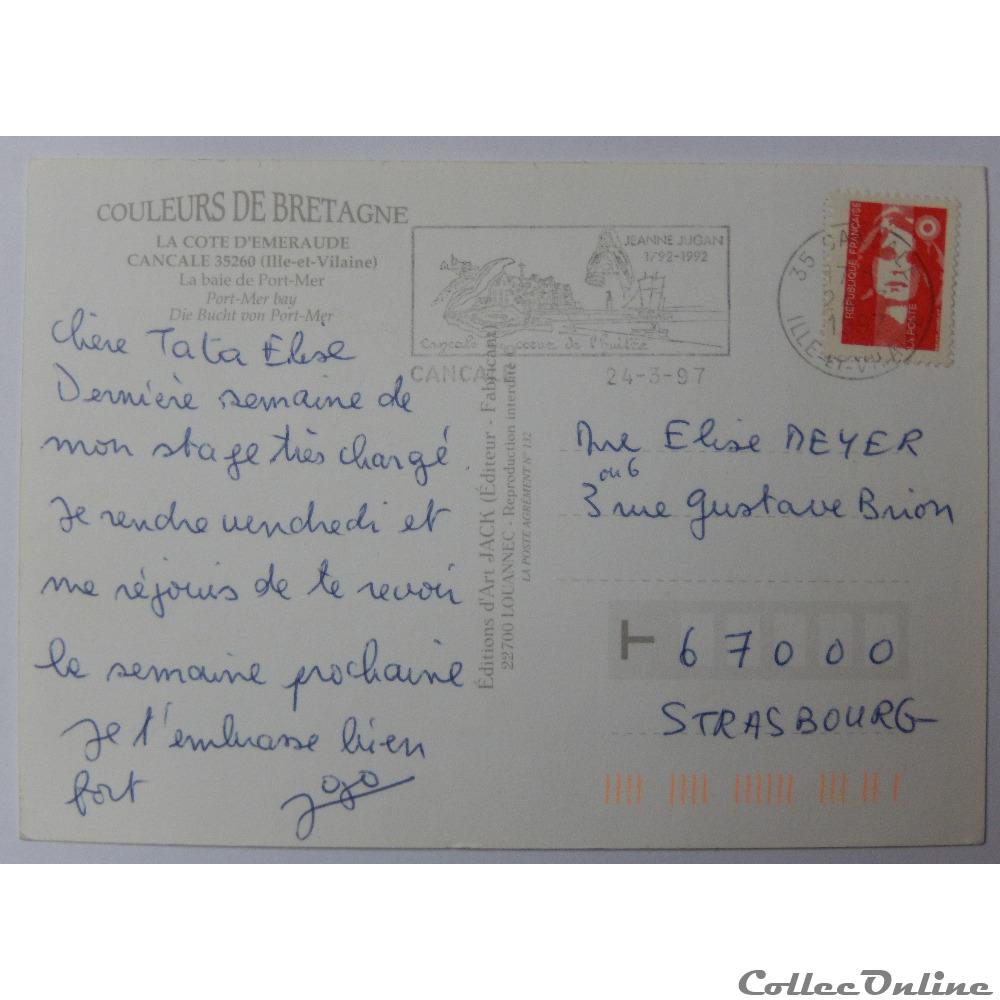 COULEURS DE BRETAGNE
LA COTE D'EMERAUDE
CANCALE 35260 (Ille-et-Vilaine)
La baie de Port-Mer
Port-Mer bay
Die Bucht von Port-Mer
JEANNE JUGAN
1792-1992
Cancale coeur de l'huître
CANCA
24-3-97
35
ILLE-ET-VILAINE
REPUBLIQUE FRANÇAISE
LA POSTE
Chère Tata Elise
Dernière semaine de
mon stage très chargé.
Je rendre vendredi et
me réjouis de te revoir
la semaine prochaine
Je t'embrasse bien
fort Jojo
Éditions d'Art JACK (Éditeur - Fabricant)
22700 LOUANNEC - Reproduction interdite
LA POSTE AGRÉMENT N° 132
Mme Elise MEYER
ou 6
3 rue Gustave Brion
T 67000
STRASBOURG
CollecOnline